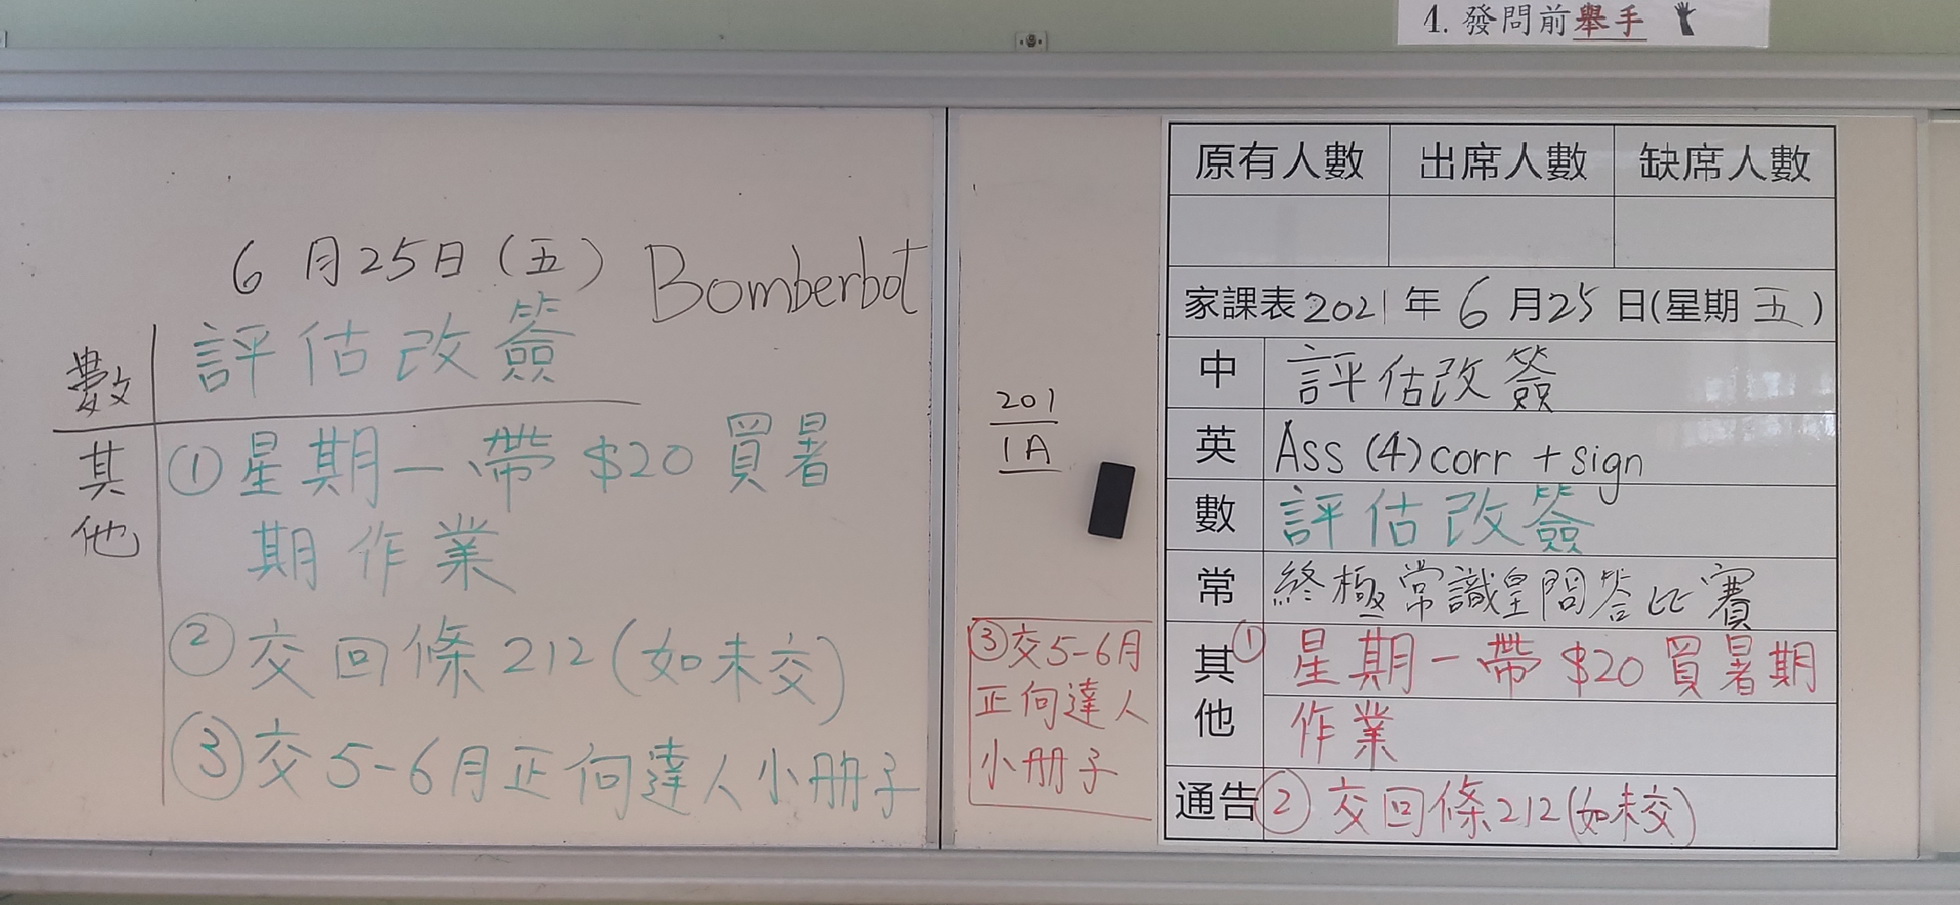 1. 發問前舉手
6月25日(五) Bomberbot
數 評估改簽
其他 ①星期一帶$20買暑
期作業
②交回條212(如未交)
③交5-6月正向達人小册子
201
1A
③交5-6月
正向達人
小册子
原有人數 出席人數 缺席人數
家課表2021年6月25日(星期五)
中 評估改簽
英 Ass (4) corr + sign
數 評估改簽
常 終極常識皇問答比賽
其他 ①星期一帶$20買暑期
作業
通告 ②交回條212(如未交)